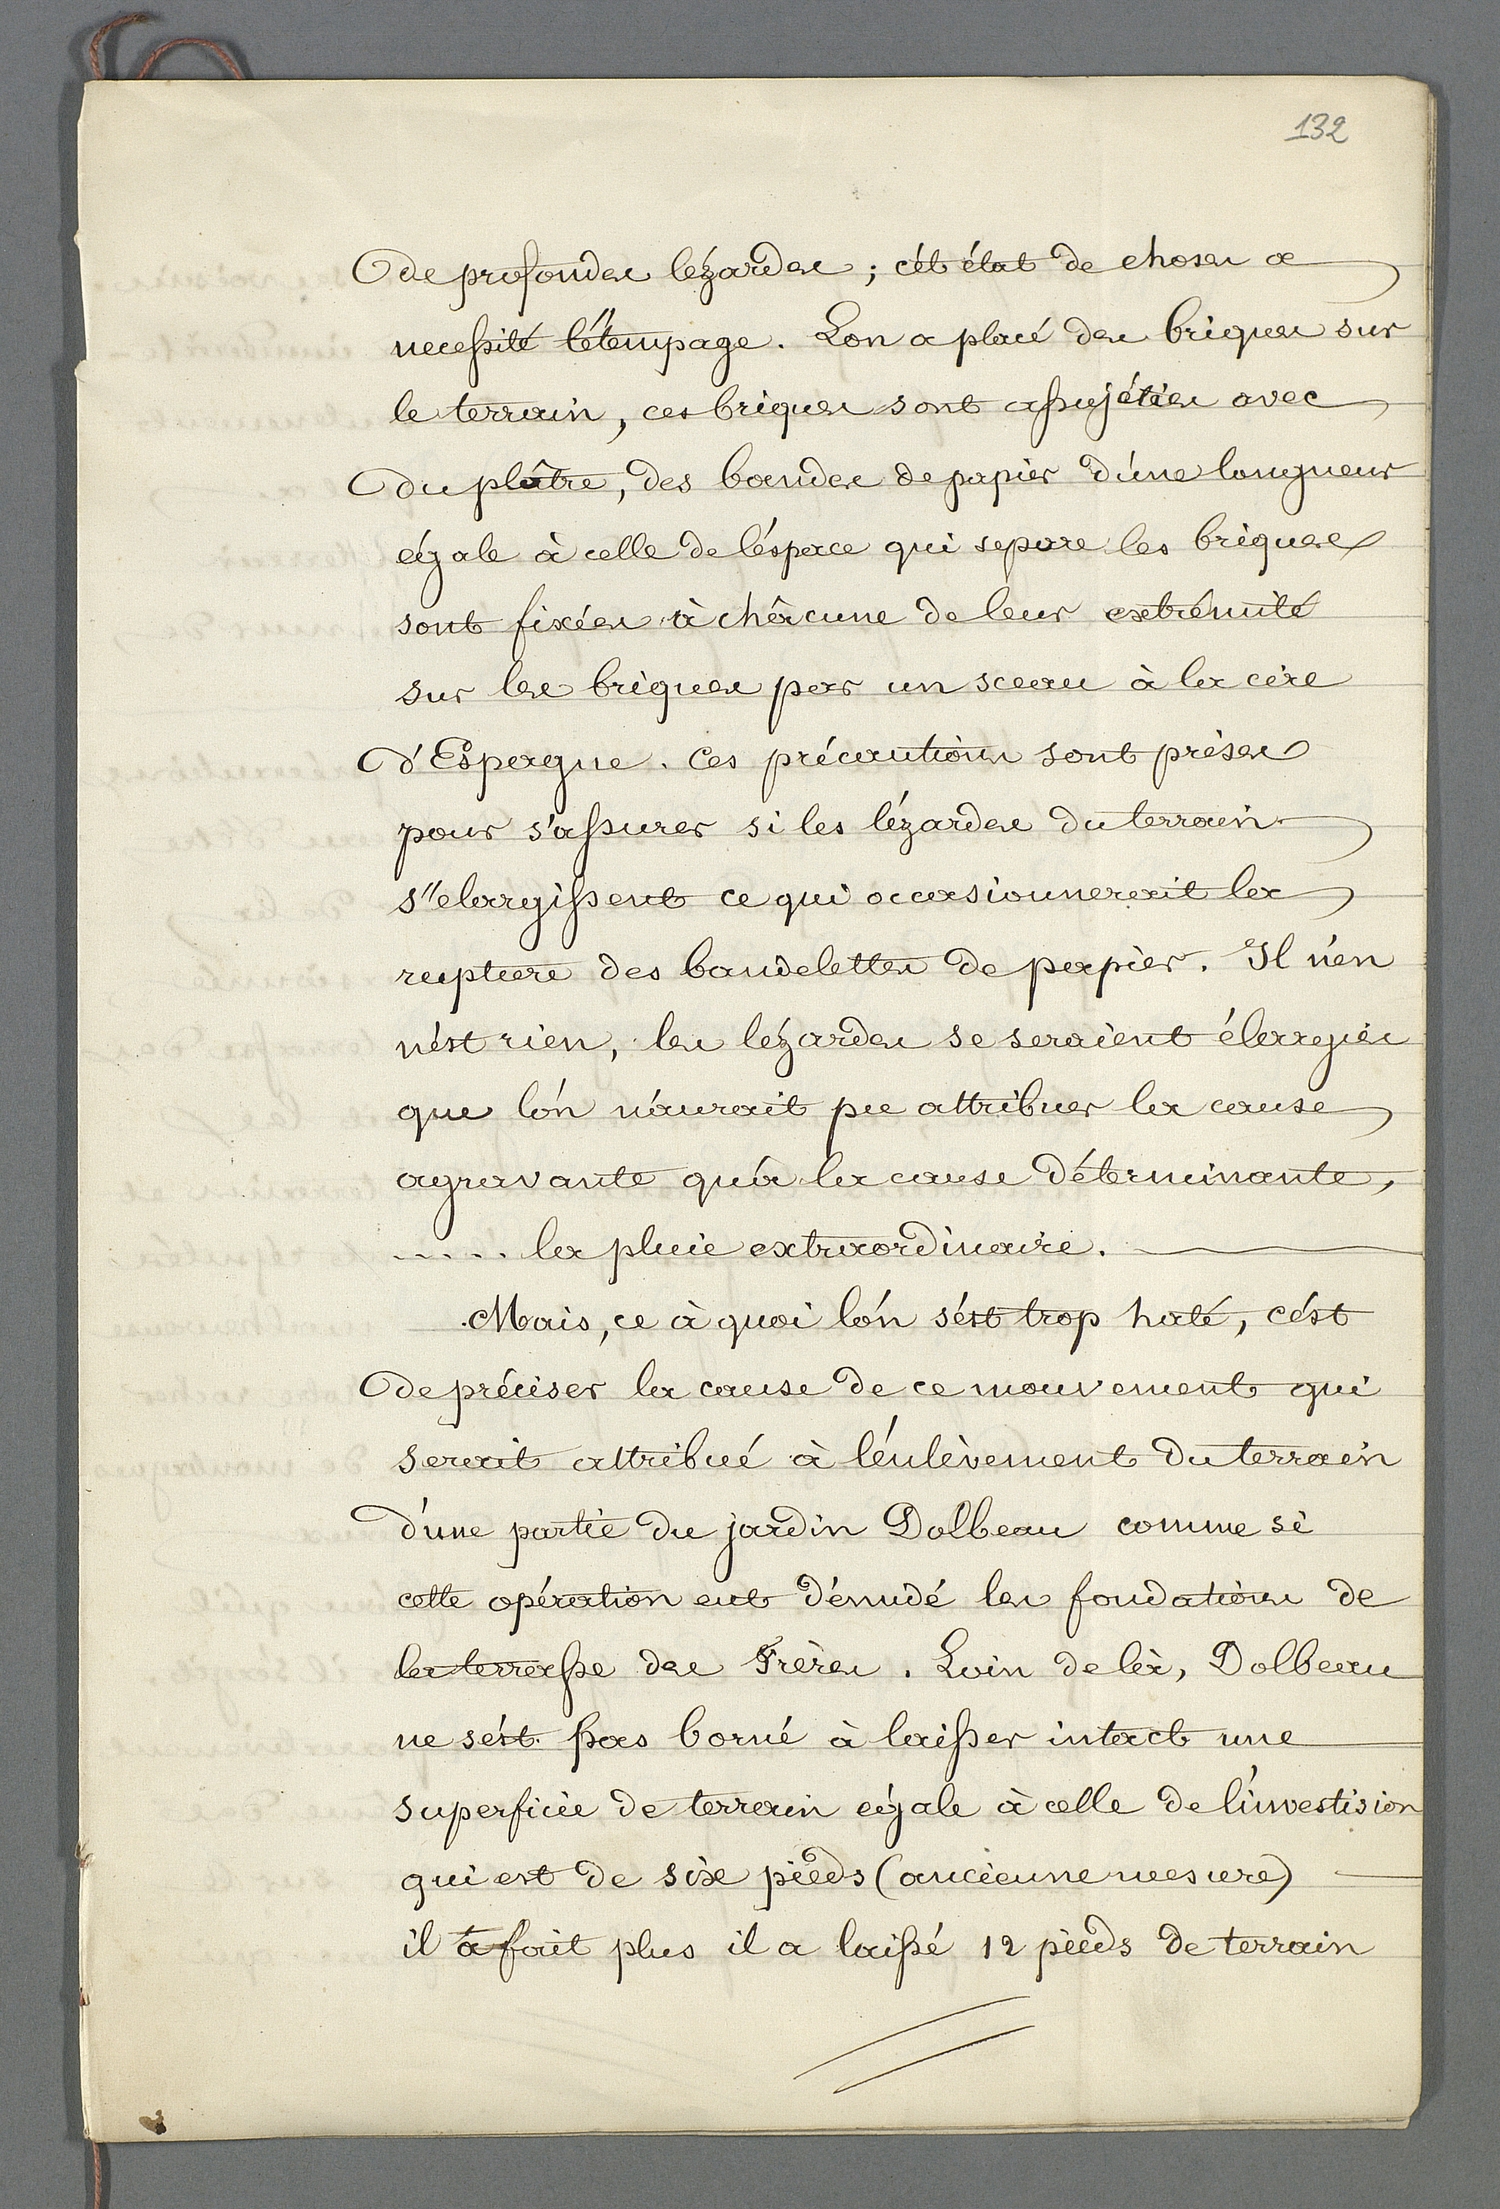 132
de profondes lézardes ; cét état de choses a
necessité l'étempage. Lon a placé des briques sur
le terrain, ces briques sont assujéties avec
du plâtre, des bandes de papier d'une longueur
égale à celle de l'éspace qui separe les briques
sont fixées à châcune de leur extrémité
sur les briques par un sceau à la cire
d'Espagne. Ces précautions sont prises
pour s'assurer si les lézardes du terrain
s'elargissent ce qui occasionnerait la
rupture des bandelettes de papier. Il n'en
n'est rien, les lézardes se seraient élargies
que l'on n'aurait pu attribuer la cause
agravante qu'à la cause déterminante,
..... la pluie extraordinaire.
Mais, ce à quoi l'on s'est trop haté, c'est
de préciser la cause de ce mouvement qui
serait attribué à l'énlèvement du terrain
d'une partie du jardin Dolbeau comme si
cette opération eut dénudé les fondations de
la terrasse des Frères. Loin de là, Dolbeau
ne s'est pas borné à laisser intact une
superficie de terrain égale à celle de l'investision
qui est de six pieds (ancienne mesure)
il a fait plus il a laissé 12 pieds de terrain